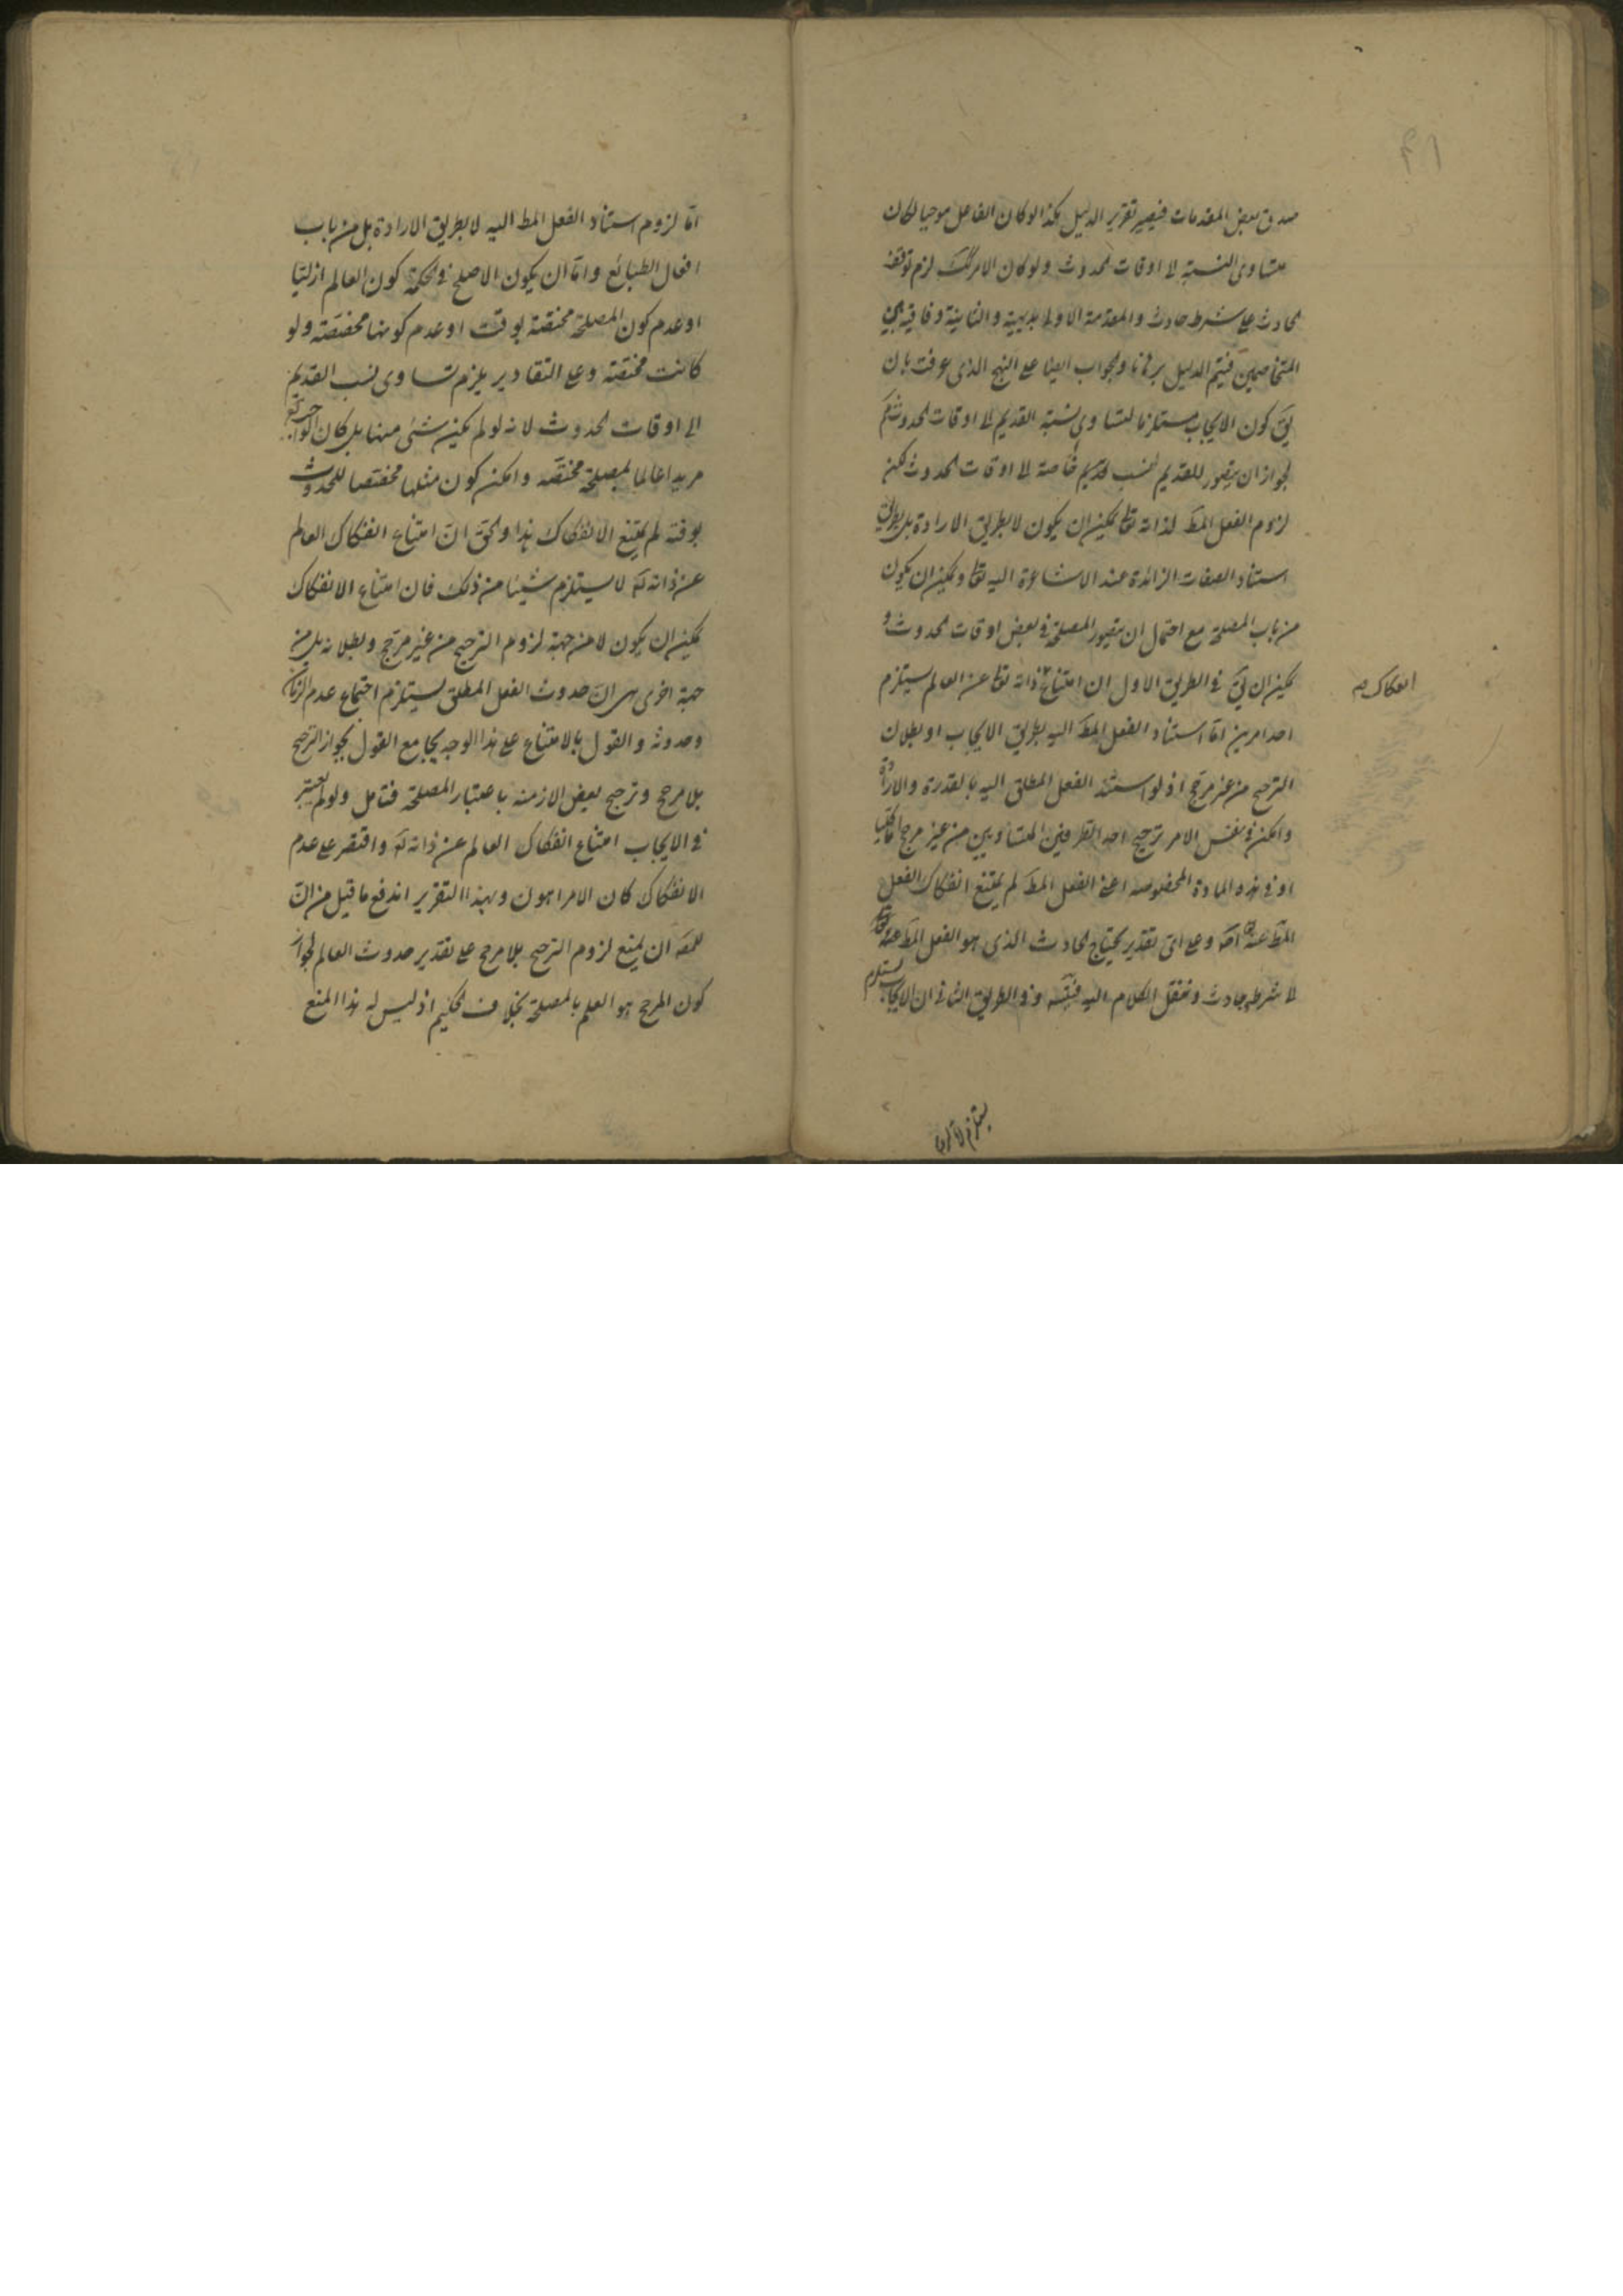 صدق بعض المقدمات فيصير تقرير الدليل هكذا لو كان الفاعل موجبا لكان
متساوى النسبة لا اوقات الحدوث ولو كان الامر كك لزم توقف
الحادث على شرط حادث والمقدمة الاولى بديهية والثانية وفاقية بين
المتخاصمين فيتم الدليل برهانا والجواب ايضا على النهج الذى عرفت بان
يق كون الايجاب مستلزما لتساوى نسبة القديم الى اوقات الحدوث مم
لجواز ان يتصور للقديم نسب قديم خاصة الى اوقات الحدوث لكن
لزوم الفعل المط لذاته تعا يمكن ان يكون لا بطريق الارادة بل بطريق
استناد الصفات الزائدة عند الاشاعرة اليه تعا ويمكن ان يكون
من باب المصلحة مع احتمال ان يتصور المصلحة فى بعض اوقات الحدوث و
يمكن ان يق فى الطريق الاول ان امتناع ذاته تعا عن العالم يستلزم
انفكاك صح
احد امرين اما استناد الفعل المط اليه بطريق الايجاب او بطلان
الترجيح من غير مرجح اذ لو استند الفعل المطلق اليه بالقدرة والارادة
وامكن فى نفس الامر ترجيح احد الطرفين المتساويين من غير مرجح اما كليا
او فى هذه المادة المخصوصه اعنى الفعل المط لم يمتنع انفكاك الفعل
المط عنه وعلى اى تقدير يحتاج الحادث الذى هو الفعل المط عنه تعا
لا شرط حادث وننقل الكلام اليه فيتسه وفى الطريق الثانى ان الايجاب يستلزم
يستلزم لا
اما لزوم استناد الفعل المط اليه لا بطريق الارادة بل من باب
افعال الطبائع واما ان يكون الاصلح فى الحكمة كون العالم ازليا
او عدم كون المصلحة مختصة بوقت او عدم كونها مخصصة ولو
كانت مختصة وعلى التقادير يلزم تساوى نسب القديم
الى اوقات الحدوث لانه لو لم يكن شئ منها بل كان الواجب تع
مريدا عالما بمصلحة مختصة وامكن كون مثلها مخصصا للحدوث
بوقته لم يمتنع الانفكاك هذا والحق ان امتناع انفكاك العالم
عن ذاته تع لا يستلزم شيئا من ذلك فان امتناع الانفكاك
يمكن ان يكون لا من جهة لزوم الترجيح من غير مرجح وبطلانه بل من
جهة اخرى هى ان حدوث الفعل المطلق يستلزم اجتماع عدم الزمان
وحدوثه والقول بالامتناع على هذا الوجه يجامع القول بجواز الترجيح
بلا مرجح وترجيح بعض الازمنه باعتبار المصلحة فتامل ولو لم يعتبر
فى الايجاب امتناع انفكاك العالم عن ذاته تع واقتصر على عدم
الانفكاك كان الامر اهون وبهذا التقرير اندفع ما قيل من ان
للمص ان يمنع لزوم الترجيح بلا مرجح على تقدير حدوث العالم لجواز
كون المرجح هو العلم بالمصلحة بخلاف الحكيم اذ ليس له هذا المنع